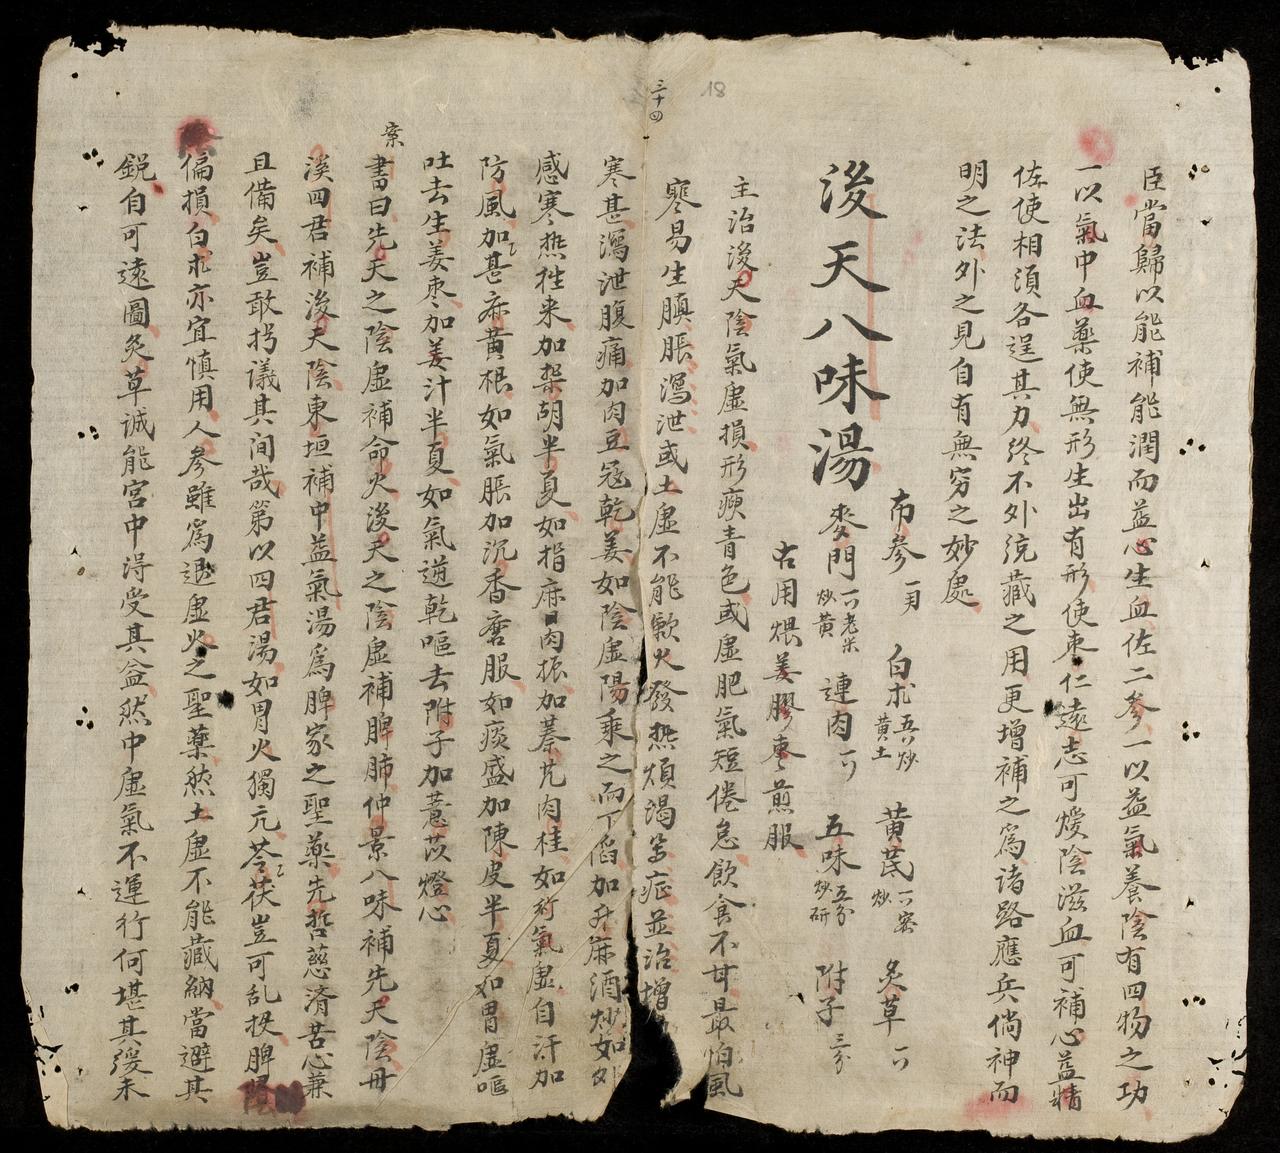 三十四
18
臣當歸以能補能潤而益心生血佐二參一以益氣養陰有四物之功
一以氣中血藥使無形生出有形使枣仁遠志可煖陰滋血可補心益精
佐使相須各逞其力終不外統藏之用更增補之爲诸路應兵倘神而
明之法外之見自有無穷之妙處
浚天八味湯
布參 白朮 五分炒黄土 黄芪 密炒 炙草
麥門 老米炒黄 連肉 五味 五分炒研 附子 三分
古用煨姜膠枣煎服
主治浚天陰氣虛損形瘐青色或虛肥氣短倦怠飲食不甘最怕風
寒易生䐜脹瀉泄或土虛不能歛火發热煩渴等症並治增
寒甚瀉泄腹痛加肉豆蔻乾姜如陰虛陽乘之而下陷加升麻酒炒如
感寒热往来加柴胡半夏如指麻目肉振加蓁艽肉桂如行氣虛自汗加
防風加甚麻黄根如氣脹加沉香磨服如痰盛加陳皮半夏如胃虛嘔
吐去生姜枣加姜汁半夏如氣逆乾嘔去附子加薏苡燈心
案
書曰先天之陰虛補命火浚天之陰虛補脾肺仲景八味補先天陰丹
溪四君補浚天陰東垣補中益氣湯爲脾家之聖藥先哲慈濟苦心兼
且備矣豈敢拐議其间哉第以四君湯如胃火獨亢苓茯豈可乱投脾陰
偏損白朮亦宜慎用人參雖爲退虛火之聖藥然土虛不能藏納當避其
鋭自可遠圖炙草誠能宫中淂受其益然中虛氣不運行何堪其緩未